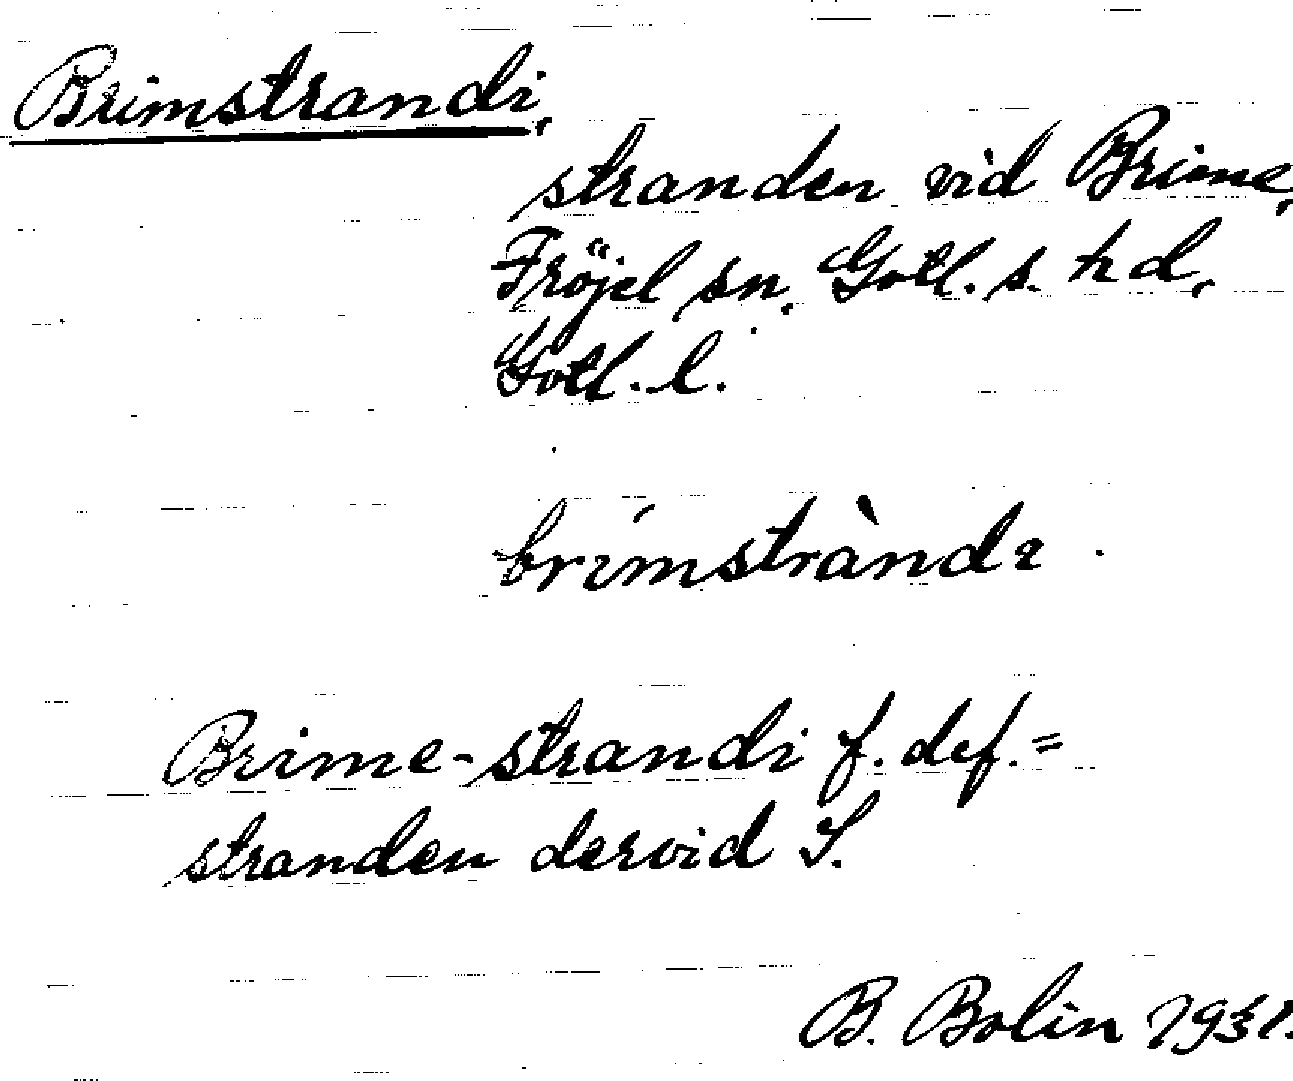 Brimstrandi,
stranden vid Brime,
Fröjel sn, Gotl. s. hd,
Gotl. l.
brímstràndı
Brime-strandi f. def. =
stranden dervid S.
B. Bolin 1931.